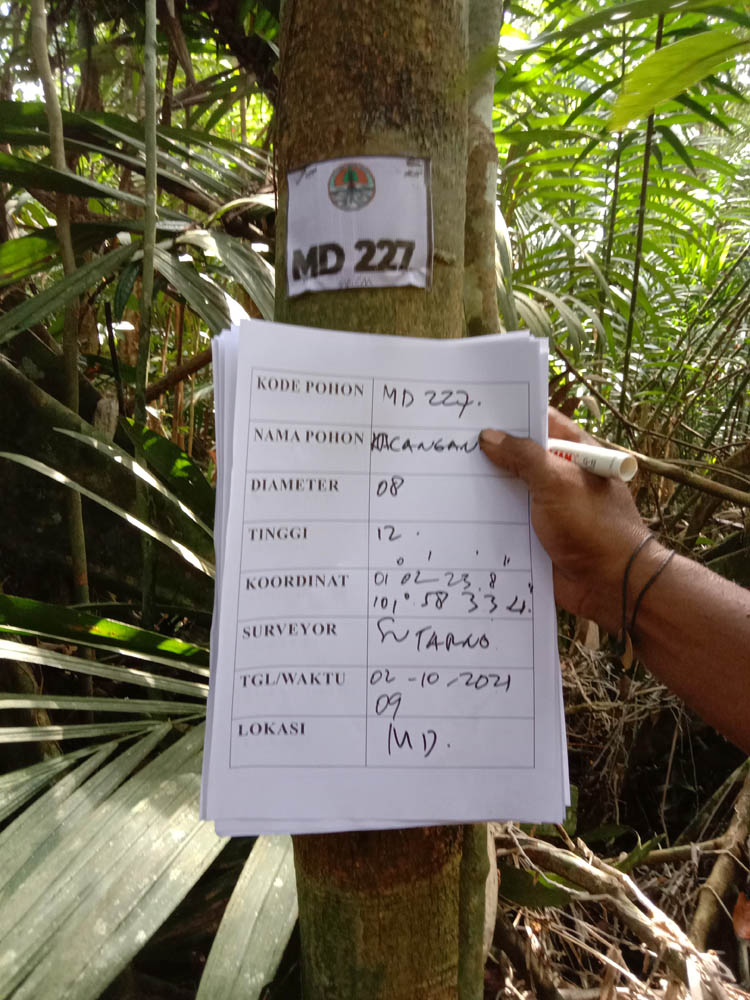 MD 227
KODE POHON MD 227.
NAMA POHON KACANGAN
DIAMETER 08
TINGGI 12.
KOORDINAT 01° 02' 23.8"
101° 58' 33.4"
SURVEYOR SUTARNO
TGL/WAKTU 02-10-2021
09
LOKASI MD.